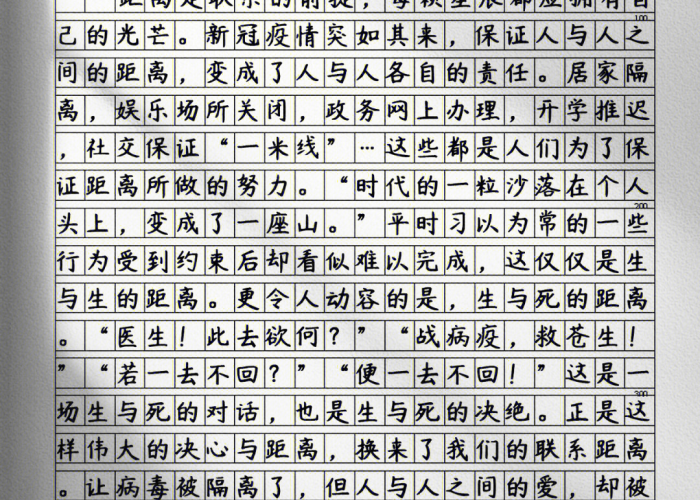 距离是联系的前提，每颗星辰都应拥有自
100
己的光芒。新冠疫情突如其来，保证人与人之
间的距离，变成了人与人各自的责任。居家隔
离，娱乐场所关闭，政务网上办理，开学推迟
，社交保证“一米线”…这些都是人们为了保
证距离所做的努力。“时代的一粒沙落在个人
200
头上，变成了一座山。”平时习以为常的一些
行为受到约束后却看似难以完成，这仅仅是生
与生的距离。更令人动容的是，生与死的距离
。“医生！此去欲何？”“战病疫，救苍生！
”“若一去不回？”“便一去不回！”这是一
300
场生与死的对话，也是生与死的决绝。正是这
样伟大的决心与距离，换来了我们的联系距离
。让病毒被隔离了，但人与人之间的爱，却被